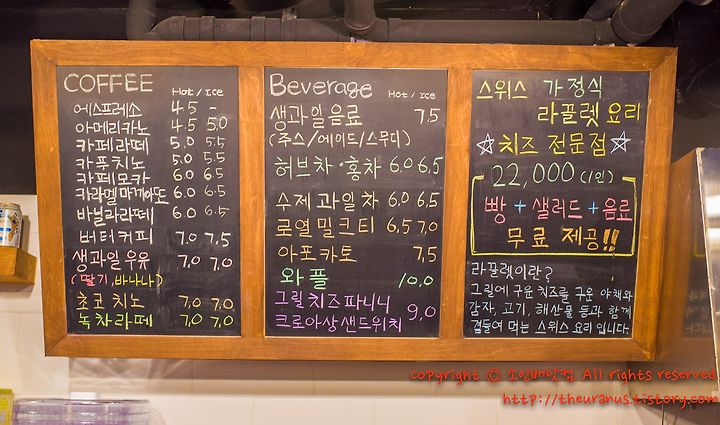 COFFEE Hot / Ice
에스프레소 4.5 -
아메리카노 4.5 5.0
카페라떼 5.0 5.5
카푸치노 5.0 5.5
카페모카 6.0 6.5
카라멜마끼아또 6.0 6.5
바닐라라떼 6.0 6.5
버터커피 7.0 7.5
생과일우유 7.0 7.0
(딸기,바나나)
초코치노 7.0 7.0
녹차라떼 7.0 7.0
Beverage Hot / Ice
생과일음료 7.5
(주스/에이드/스무디)
허브차·홍차 6.0 6.5
수제과일차 6.0 6.5
로열밀크티 6.5 7.0
아포카토 7.5
와플 10.0
그릴치즈파니니 9.0
크로아상샌드위치
스위스 가정식
라끌렛요리
☆치즈 전문점☆
22,000 (1인)
빵 + 샐러드 + 음료
무료 제공!!
라끌렛이란?
그릴에 구운 치즈를 구운 야채와
감자, 고기, 해산물 등과 함께
곁들여 먹는 스위스 요리입니다.
copyright ⓒ 소인배닷컴 All rights reserved.
http://theuranus.tistory.com